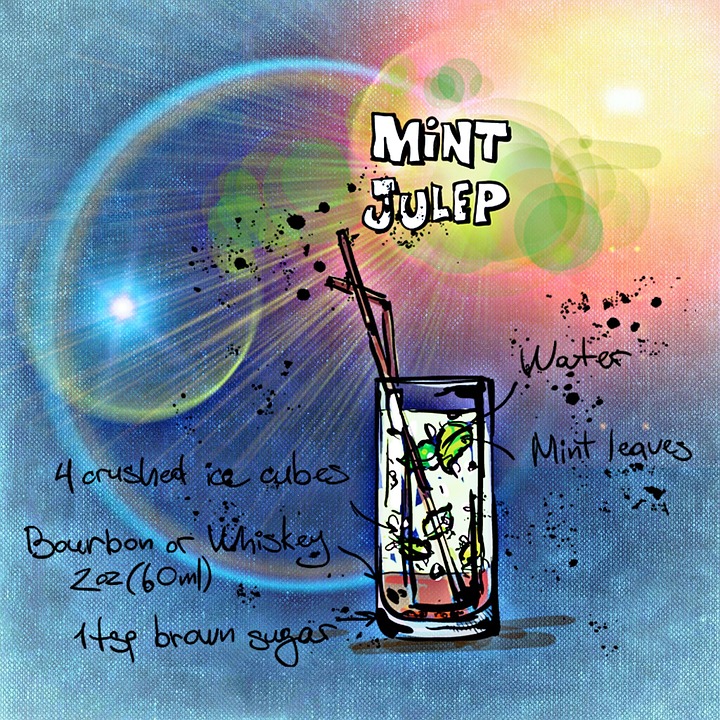 MiNT
JULEP
Water
Mint leaves
4 crushed ice cubes
Bourbon or Whiskey
2oz (60ml)
1tsp brown sugar